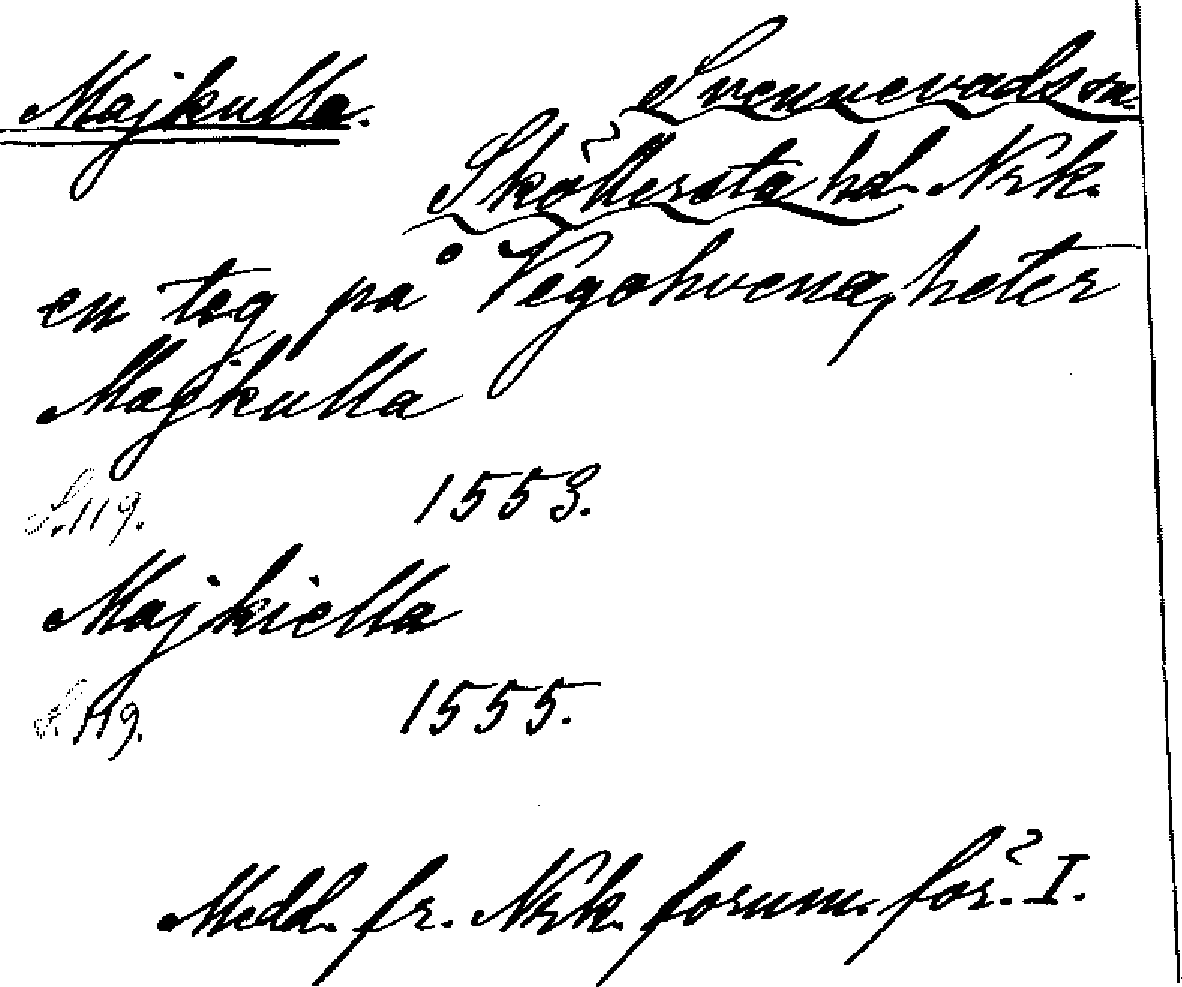 Majkulla. Svennevads sn.
Sköllersta hd. Nrk.
en teg på Vegohvena, heter
Majkulla
S. 119. 1553.
Majkiella
S. 119. 1555.
Medd. fr. Nrk. fornm. för. I.